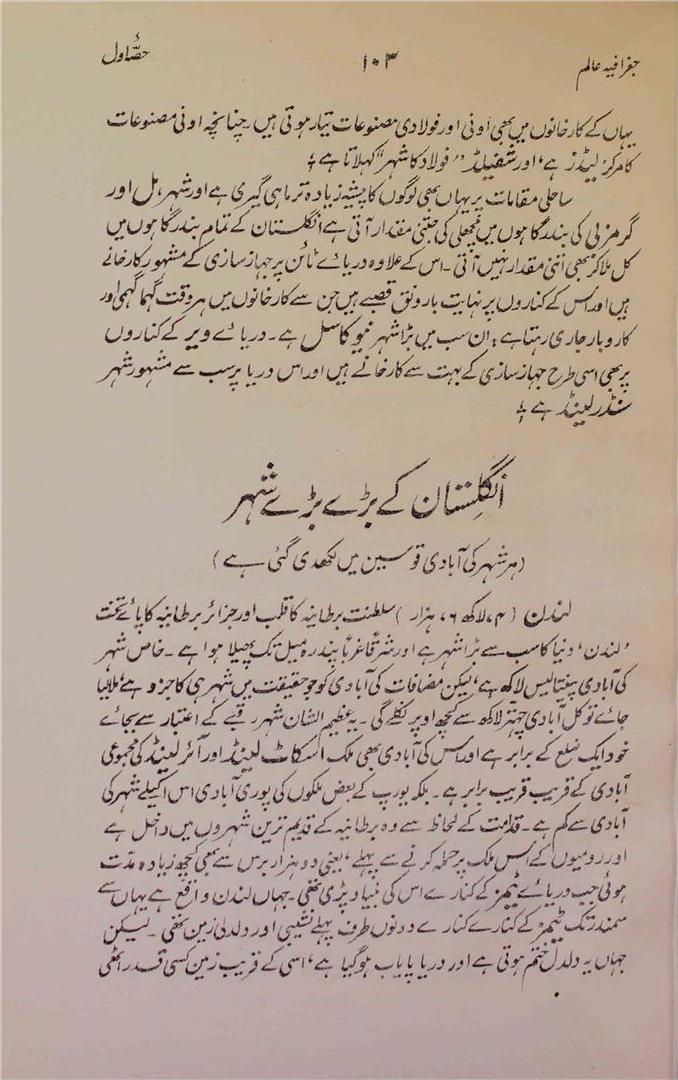 جغرافیہ عالم ۱۰۳ حصّۂ اول
یہاں کے کارخانوں میں بھی اونی اور فولادی مصنوعات تیار ہوتی ہیں۔ چنانچہ اونی مصنوعات
کا مرکز لیڈز ہے، اور شفیلڈ ”فولاد کا شہر“ کہلاتا ہے؛
ساحلی مقامات پر یہاں بھی لوگوں کا پیشہ زیادہ تر ماہی گیری ہے اور شہر، ہل اور
گرمزبی کی بندرگاہوں میں مچھلی کی جتنی مقدار آتی ہے انگلستان کے تمام بندرگاہوں میں
کل ملا کر بھی اتنی مقدار نہیں آتی۔ اس کے علاوہ دریائے ٹائن پر جہاز سازی کے مشہور کارخانے
ہیں اور اس کے کناروں پر نہایت بارونق قصبے ہیں جن سے کارخانوں میں ہر وقت گہما گہمی اور
کاروبار جاری رہتا ہے؛ ان سب میں بڑا شہر نیو کاسل ہے۔ دریائے ویر کے کناروں
پر بھی اسی طرح جہاز سازی کے بہت سے کارخانے ہیں اور اس دریا پر سب سے مشہور شہر
سنڈرلینڈ ہے؛
انگلِستان کے بڑے بڑے شہر
(ہر شہر کی آبادی قوسین میں لکھدی گئی ہے)
لندن (۷۴ لاکھ ۷۶ ہزار) سلطنت برطانیہ کا قلب اور جزائر برطانیہ کا پائے تخت
’لندن‘ دنیا کا سب سے بڑا شہر ہے اور شرقاً غرباً پندرہ میل تک پھیلا ہوا ہے۔ خاص شہر
کی آبادی پینتالیس لاکھ ہے، لیکن مضافات کی آبادی کو جو حقیقت میں شہر ہی کا جزو ہے، ملا لیا
جائے تو کل آبادی چوہتر لاکھ سے کچھ اوپر نکلے گی۔ یہ عظیم الشان شہر رقبے کے اعتبار سے بجائے
خود ایک ضلع کے برابر ہے اور اس کی آبادی بھی ملک اسکاٹ لینڈ اور آئرلینڈ کی مجموعی
آبادی کے قریب قریب برابر ہے۔ بلکہ یورپ کے بعض ملکوں کی پوری آبادی اس اکیلے شہر کی
آبادی سے کم ہے۔ قدامت کے لحاظ سے وہ برطانیہ کے قدیم ترین شہروں میں داخل ہے
اور رومیوں کے اس ملک پر حملہ کرنے سے پہلے، یعنی دو ہزار برس سے بھی کچھ زیادہ مدّت
ہوئی جب دریائے ٹیمز کے کنارے اس کی بنیاد پڑی تھی۔ جہاں لندن واقع ہے یہاں سے
سمندر تک ٹیمز کے کنارے کنارے دونوں طرف پہلے نشیبی اور دلدلی زمین تھی۔ لیکن
جہاں یہ دلدل ختم ہوتی ہے اور دریا پایاب ہو گیا ہے، اسی کے قریب زمین کسی قدر اٹھی